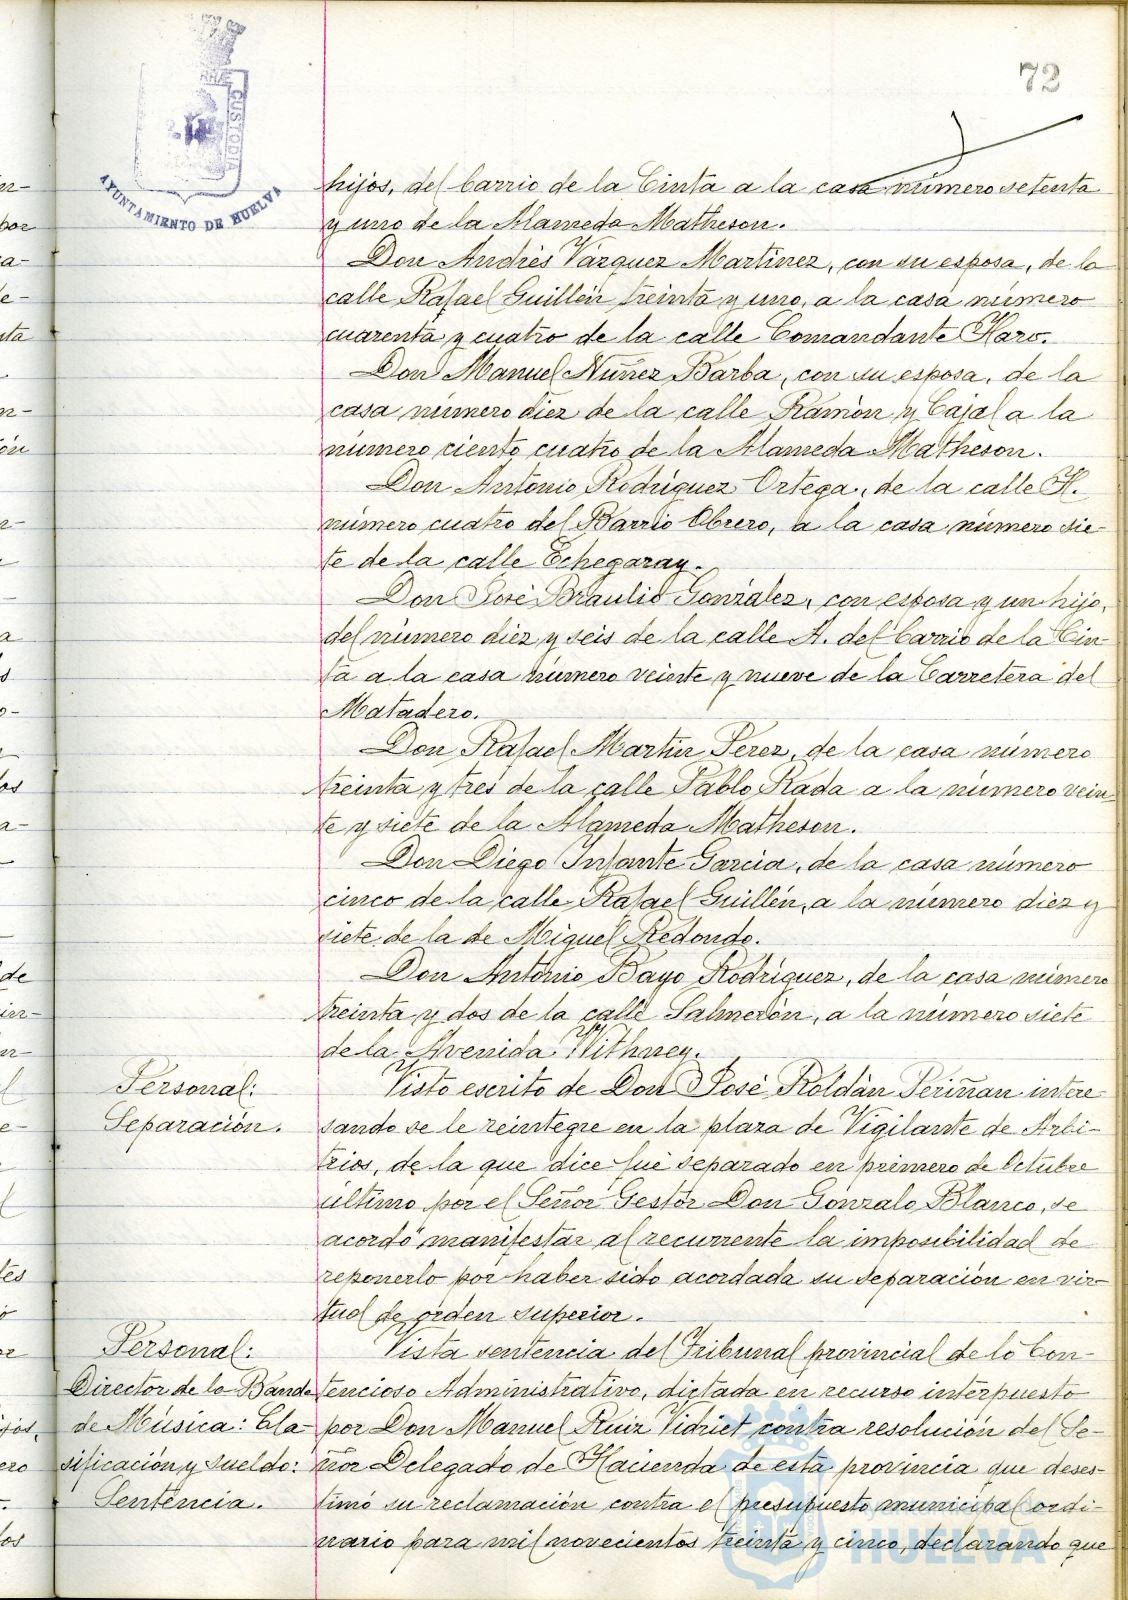 72
CUSTODIA
AYUNTAMIENTO DE HUELVA
hijos, del barrio de la Cinta a la casa número setenta
y uno de la Alameda Matheson.
Don Andrés Vázquez Martinez, con su esposa, de la
calle Rafael Guillén treinta y uno, a la casa número
cuarenta y cuatro de la calle Comandante Haro.
Don Manuel Núñez Barba, con su esposa, de la
casa número diez de la calle Ramón y Cajal a la
número ciento cuatro de la Alameda Matheson.
Don Antonio Rodríguez Ortega, de la calle H.
número cuatro del Barrio Obrero, a la casa número sie-
te de la calle Echegaray.
Don José Braulio González, con esposa y un hijo,
del número diez y seis de la calle A. del barrio de la Cin-
ta a la casa número veinte y nueve de la Carretera del
Matadero.
Don Rafael Martín Pérez, de la casa número
treinta y tres de la calle Pablo Rada a la número vein-
te y siete de la Alameda Matheson.
Don Diego Infante Garcia, de la casa número
cinco de la calle Rafael Guillén, a la número diez y
siete de la de Miguel Redondo.
Don Antonio Bayo Rodríguez, de la casa número
treinta y dos de la calle Salmerón, a la número siete
de la Avenida Withney.
Personal:
Separación.
Visto escrito de Don José Roldán Periñan intere-
sando se le reintegre en la plaza de Vigilante de Arbi-
trios, de la que dice fué separado en primero de Octubre
último por el Señor Gestor Don Gonzalo Blanco, se
acordó manifestar al recurrente la imposibilidad de
reponerlo por haber sido acordada su separación en vir-
tud de orden superior.
Personal:
Director de la Banda
de Música: Cla-
sificación y sueldo:
Sentencia.
Vista sentencia del Tribunal provincial de lo Con-
tencioso Administrativo, dictada en recurso interpuesto
por Don Manuel Ruiz Vidriet contra resolución del Se-
ñor Delegado de Hacienda de esta provincia que deses-
timó su reclamación contra el presupuesto municipal ordi-
nario para mil novecientos treinta y cinco, declarando que
Ayuntamiento de
HUELVA